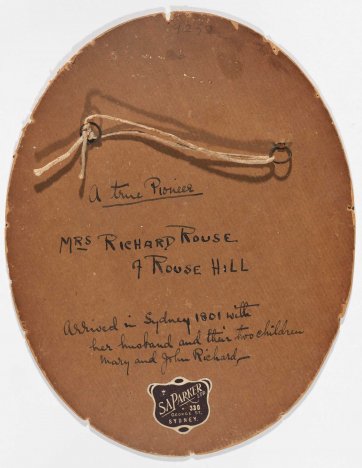 A true Pioneer
MRS RICHARD ROUSE
of ROUSE HILL
Arrived in Sydney 1801 with
her husband and their two children
Mary and John Richard
S.A. PARKER LTD
336
GEORGE ST.
SYDNEY.